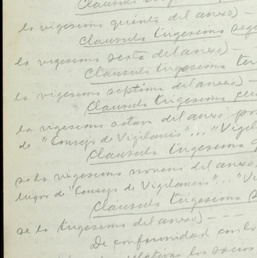 Clausula trigesima
la vigesima quinta del anexo) —
Clausula trigesima seg
la vigesima sexta del anexo) —
Clausula trigesima ter
la vigesima septima del anexo) —
Clausula trigesima cu
la vigesima octava del anexo po
de "Consejo de Vigilancia"... "Vigil
Clausula trigesima
sola vigesima novena del anexo
lugar de "Consejo de Vigilancia"... "V
Clausula trigesima s
se la trigesima del anexo) — — —
De conformidad con lo
los socios